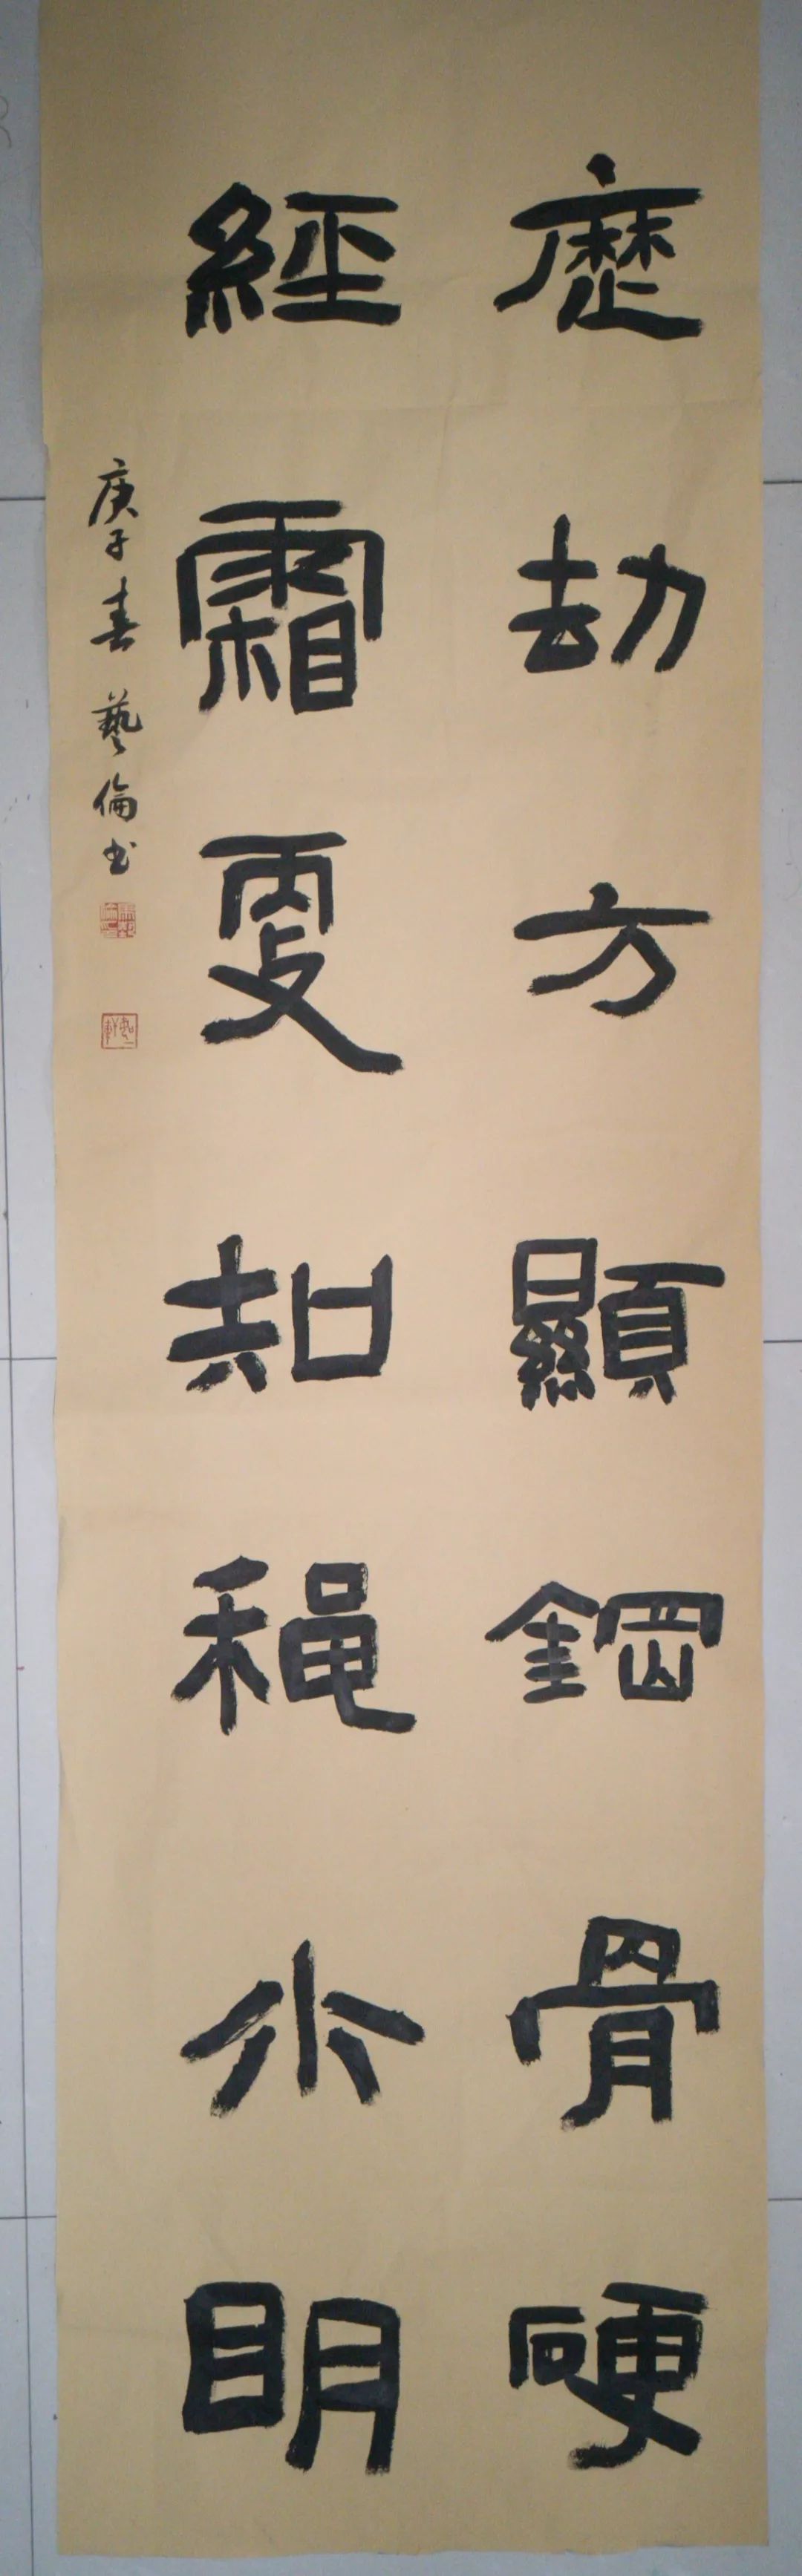 歷劫方顯鋼骨硬
經霜更知穐水眀
庚子春 藝倫书